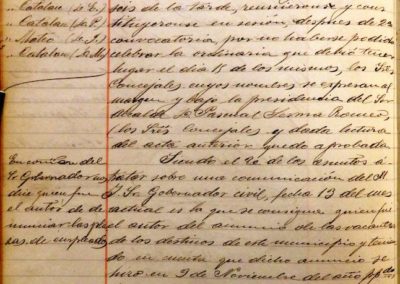 " Catalan (de E)
" Catalan (de P)
" Mateo (de J)
" Catalan (de M)
En conton del
Sr Gobernador
dice quien fue
el autor de de
nunciar las
sas de empleados
dois de la tarde, reuniéronse y cons
tituyeronse en sesión, despues de 2a
convocatoria, por no haberse podido
celebrar la ordinaria que debió tener
lugar el dia 18 de los mismos, los Sres
Concejales cuyos nombres se expresan al
margen y bajo la presidencia del Sor
Alcalde D. Pascual Serma Romeo,
(los Sres Concejales y dada lectura
del acta anterior quedo aprobada
Siendo el 2o de los asuntos á
tratar sobre una comunicación del M.
I. Sr Gobernador civil, fecha 13 del mes
actual es lo que se consigue quien fue
el autor del anuncio de las vacantes
de los destinos de este municipio y tenien
do en cuenta que dicho anuncio se
hizo en 9 de Noviembre del año ppdo